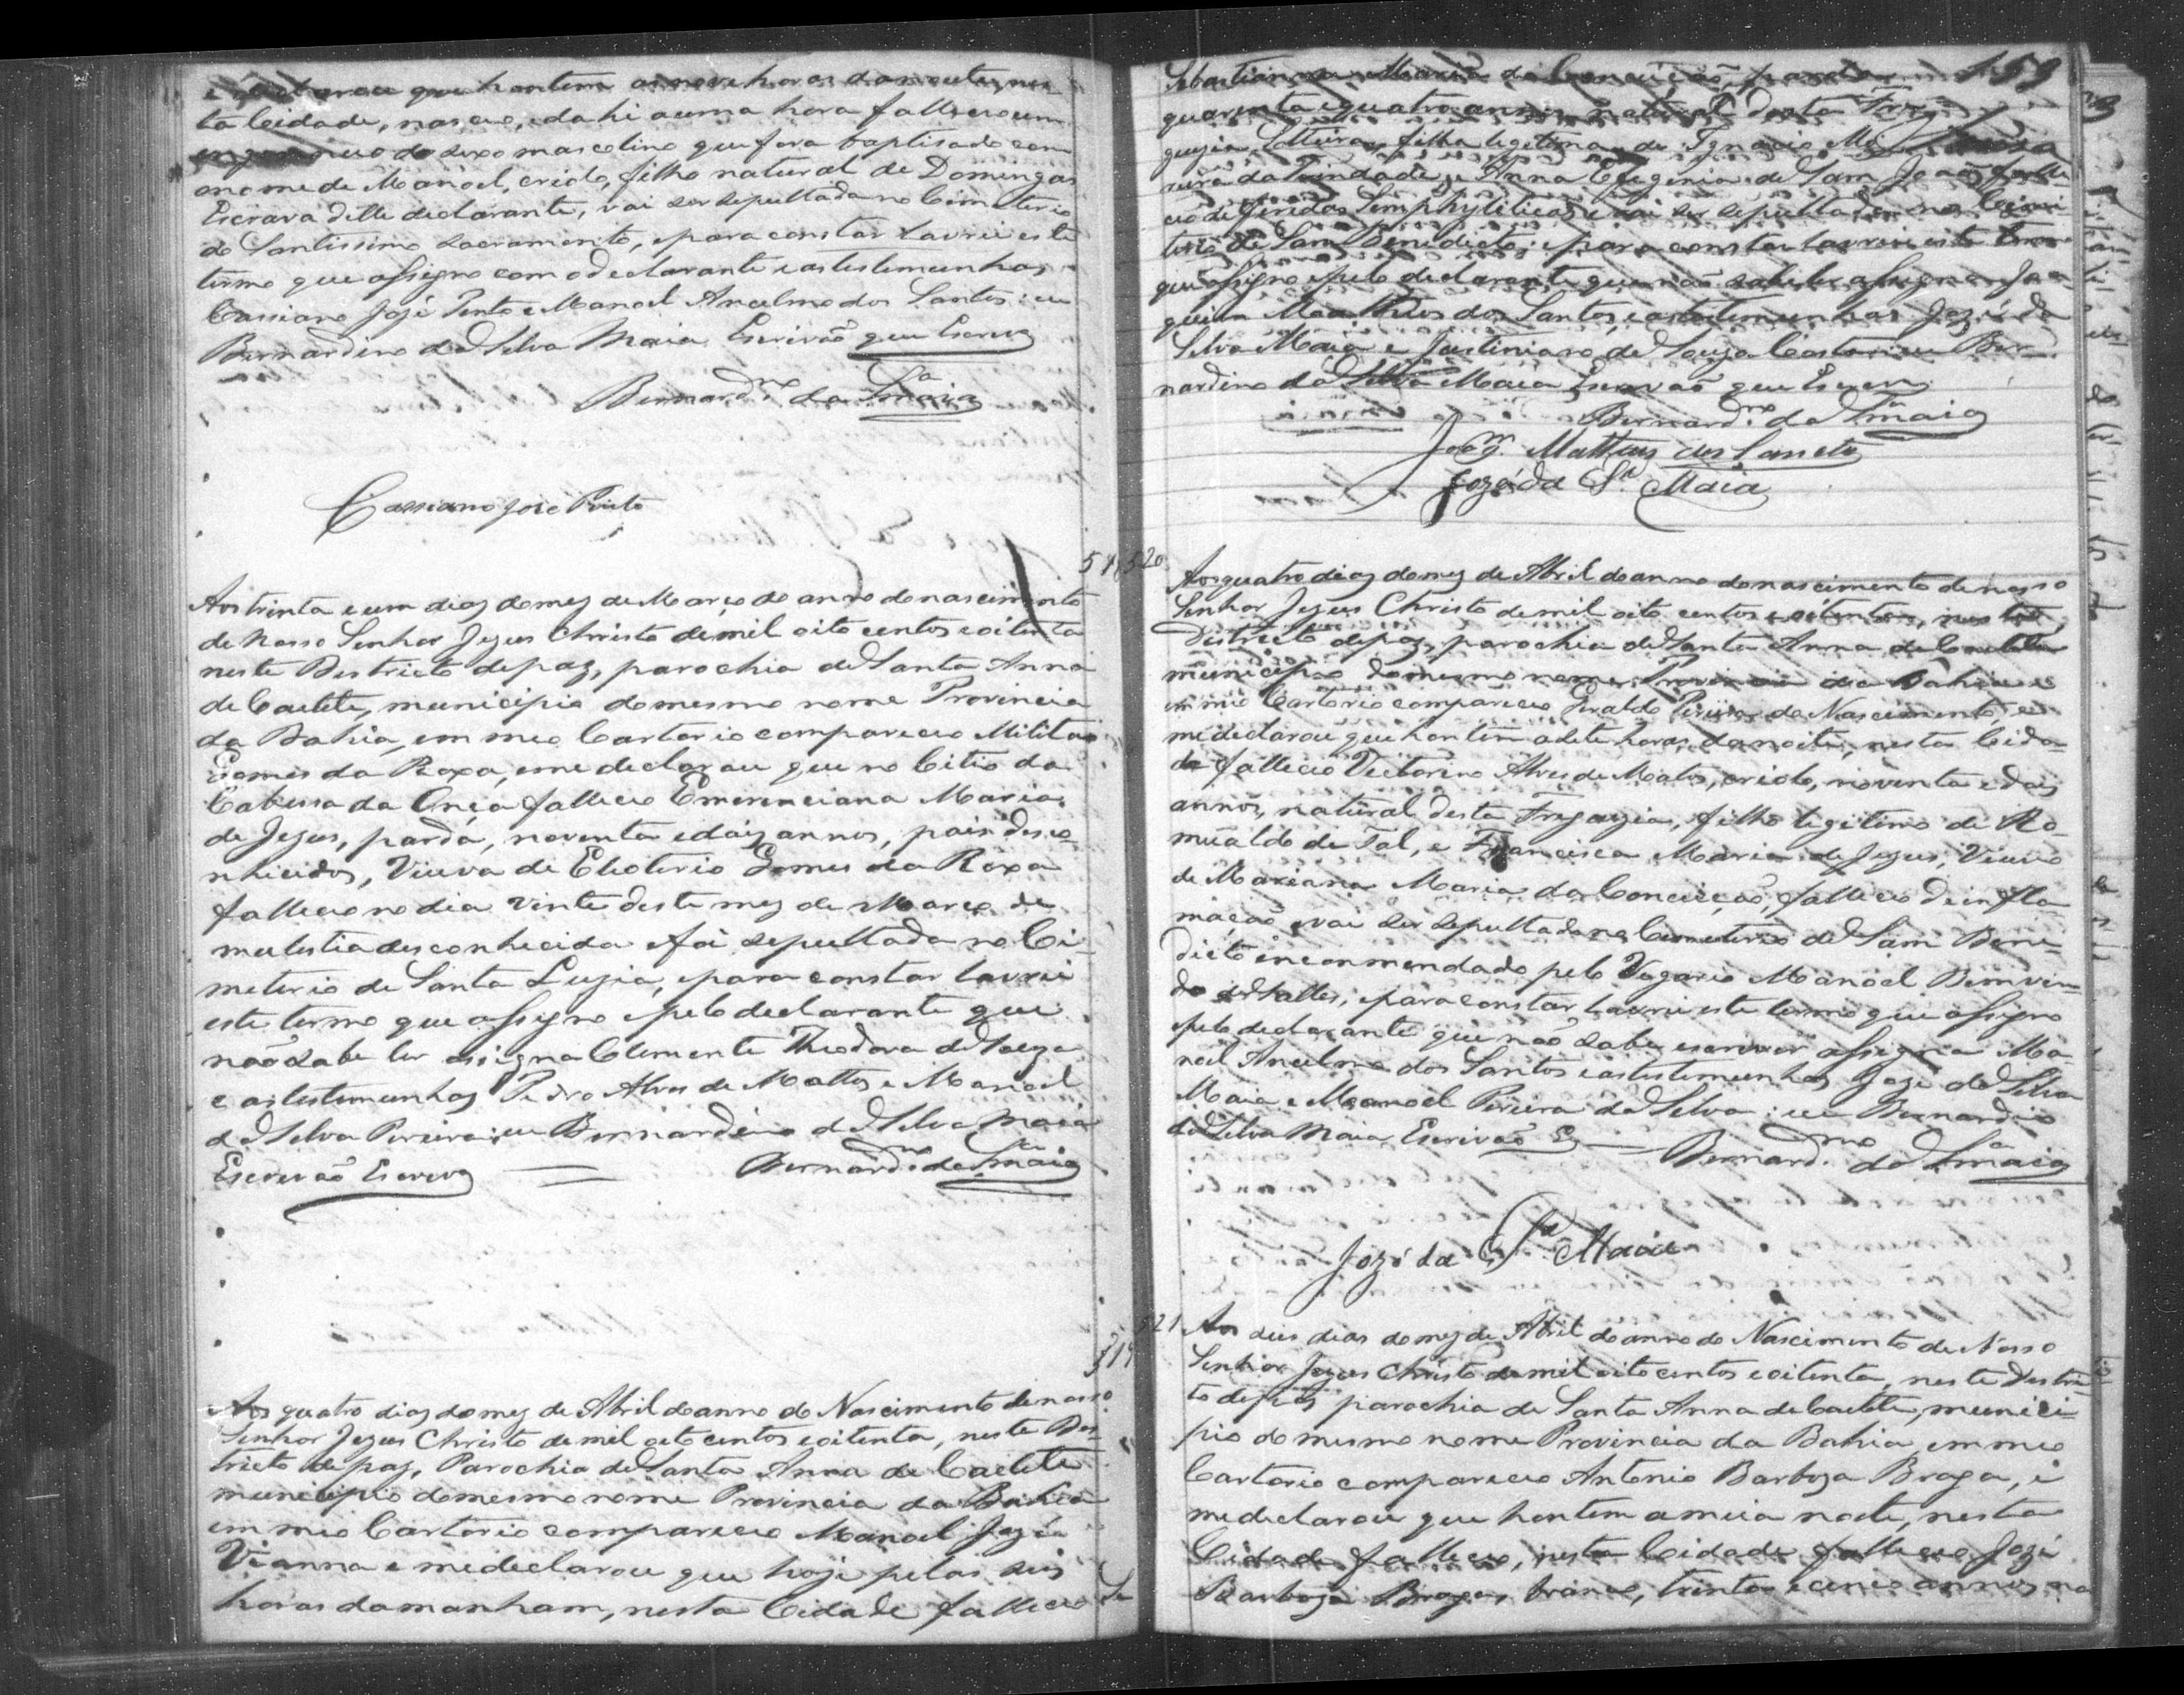 e declarou que hontem as nove horas da noute, nes
ta Cidade, nasceo, e dahi a uma hora falleceo um
do sexo masculino que fora baptisado com
o nome de Manoel, criolo, filho natural de Domingas
Escrava delle declarante, vai ser sepultada no Cimeterio
do Santissimo Sacramento, e para constar lavrei este
termo que assigno com o declarante e as testemunhas
Cassiano José Pinto e Manoel Ancelmo dos Santos: eu
Bernardino da Silva Maia Escrivaõ que Escrevy
Bernard.no da S.a Maia
Cassiano José Pinto
518
Aos trinta e um dias do mez de Março do anno do nascimento
de Nosso Senhor Jezus Christo de mil oito centos e oitenta
neste Destricto de paz, parochia de Santa Anna
de Caetité, municipio do mesmo nome Provincia
da Bahia, em meo Cartorio compareceo Militaõ
Gomes da Roxa, e me declarou que no Citio da
Cabessa da Onça falleceo Emerenciana Maria
de Jezus, parda, noventa e dois annos, pais desco-
nhicidos, Viuva de Eleoterio Gomes da Roxa
falleceo no dia vinte deste mez de Março de
mulestia desconhecida e foi sepultada no Ci-
meterio de Santa Luzia, e para constar lavrei
este termo que assigno e pelo declarante que
naõ sabe ler assigna Clemente Theodora de Souza
e as testemunhas Pedro Alves de Mattos e Manoel
da Silva Pereira: eu Bernardino da Silva Maia
Escrevaõ Escrevy Bernard.no da S.a Maia
519
Aos quatro dias do mez de Abril do anno do Nascimento de nosso
Senhor Jezus Christo de mil oito centos e oitenta, neste Des-
tricto de paz, Parochia de Santa Anna de Caetité
municipio do mesmo nome Provincia da Bahia
em meo Cartorio compareceo Manoel José
Vianna e me declarou que hoje pelas seis
horas da manham, nesta Cidade falleceo Se
159
Sebastianna Maria da Conceiçaõ, parda
quarenta e quatro annos, natural desta Fre
guezia, Solteira, filha legitima de Ignacio
da Trindade e Anna Efigenia de Sam Joaõ, falle
ceo de feridas Semphyliticas, e vai ser sepultada no Cimi
terio de Sam Benedicto; e para constar lavrei este termo
que assigno e pelo declarante que naõ sabe ler assigna Joa
quim Matheos dos Santos, e as testemunhas José da
Silva Maia e Justiniano de Souza Castro: eu Ber
nardino da Silva Maia Escrivaõ que Escrevy
Bernard.no da S.a Maia
Joaq.m Mattheus dos Santos
Jozé da S.a Maia
520
Aos quatro dias do mez de Abril do anno do nascimento de nosso
Senhor Jezus Christo de mil oito centos e oitenta, neste
Districto de paz, parochia de Santa Anna de Caetité
municipio do mesmo nome Provincia da Bahia e
em meo Cartorio compareceo Geraldo Pereira do Nascimento, e
me declarou que hontem a sete horas da noite, nesta Cida-
de falleceo Victorino Alves de Matos, criolo, noventa e dois
annos, natural desta Freguezia, filho legitimo de Ro-
mualdo de Tal, e Francisca Maria de Jezus, Viuvo
de Mariana Maria da Conceiçaõ, falleceo de infla
maçaõ e vai ser sepultada no Cimeterio de Sam Bene-
dicto encommendado pelo Vigario Manoel Bemvin-
do de Salles, e para constar, lavrei este termo que assigno
e pelo declarante que naõ sabe escrever assigna Ma-
noel Ancelmo dos Santos e as testemunhas José da Silva
Maia e Manoel Pereira da Silva: eu Bernardino
da Silva Maia Escrivaõ Bernard.no da S.a Maia
Jozé da S.a Maia
521
Aos deis dias do mez de Abril do anno do Nascimento de Nosso
Senhor Jezus Christo de mil oito centos e oitenta, neste Destri-
to de paz parochia de Santa Anna de Caetité, munici-
pio do mesmo nome Provincia da Bahia, em meo
Cartorio compareceo Antonio Barboza Braga, e
me declarou que hontem a meia noite, nesta
Cidade falleceo, nesta Cidade falleceo José
Barboza Braga, branco, trinta e cinco annos, na